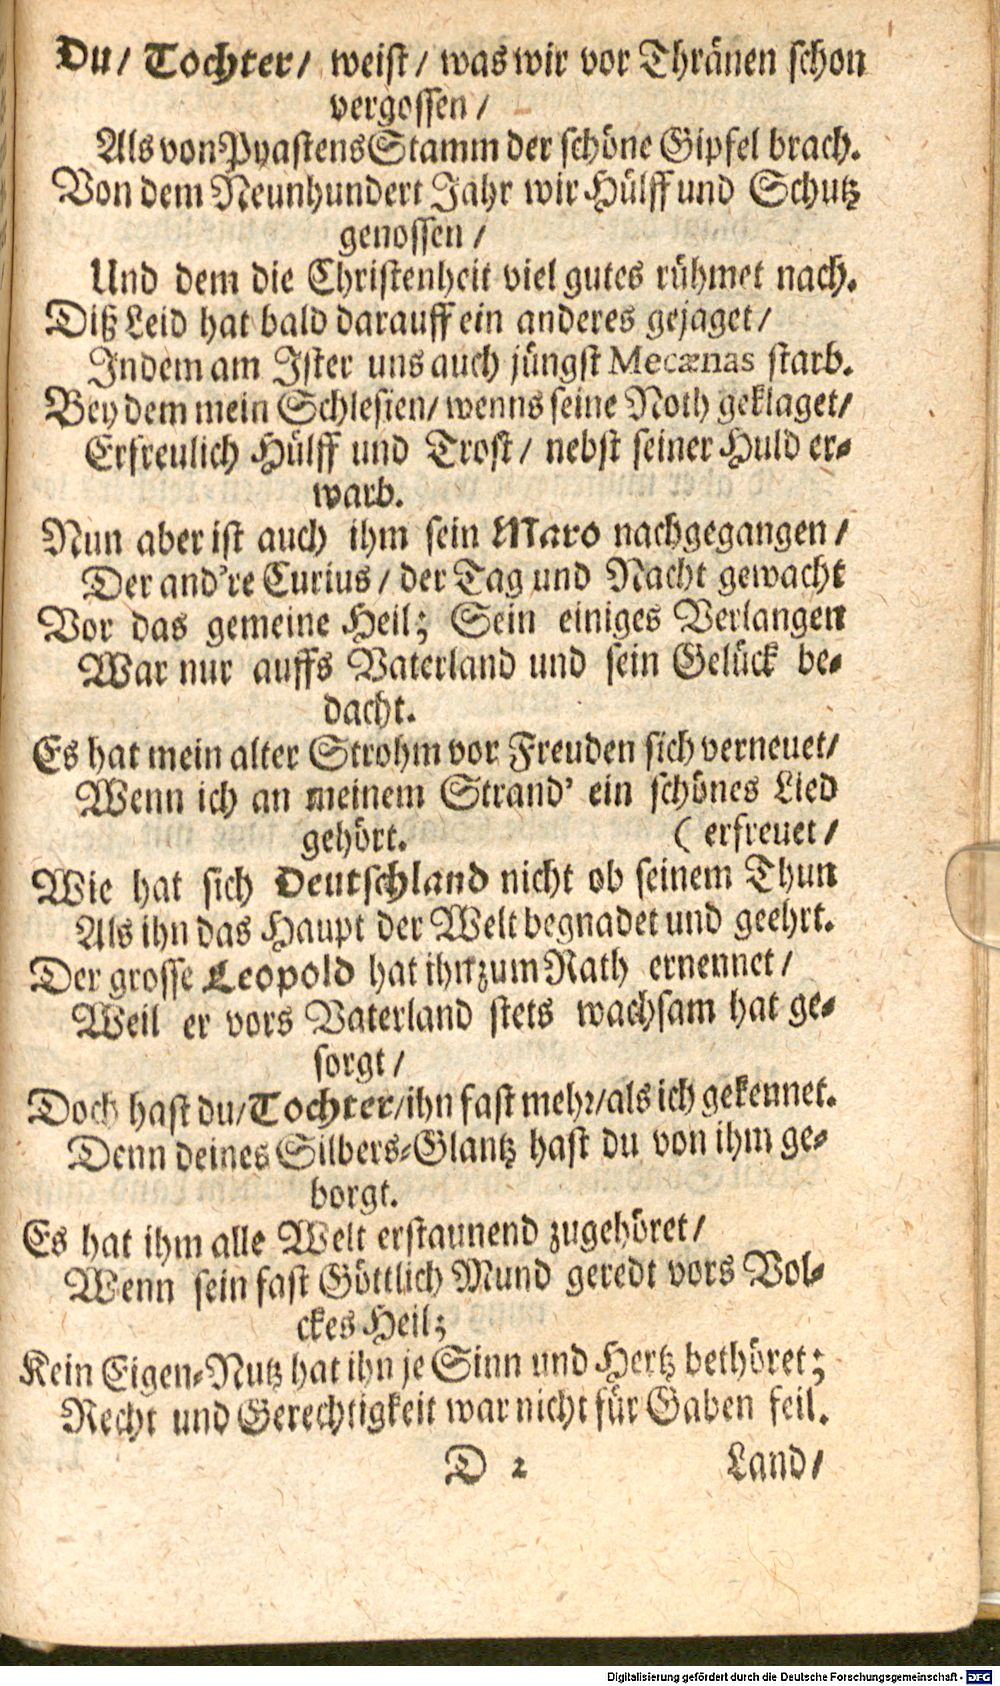 Du/ Tochter/ weist/ was wir vor Thränen schon
vergossen/
Als von Pyastens Stamm der schöne Gipfel brach.
Von dem Neunhundert Jahr wir Hülff und Schutz
genossen/
Und dem die Christenheit viel gutes rühmet nach.
Diß Leid hat bald darauff ein anderes gejaget/
Indem am Ister uns auch jüngst Mecænas starb.
Bey dem mein Schlesien/ wenns seine Noth geklaget/
Erfreulich Hülff und Trost/ nebst seiner Huld er-
warb.
Nun aber ist auch ihm sein Maro nachgegangen/
Der and're Curius/ der Tag und Nacht gewacht
Vor das gemeine Heil; Sein einiges Verlangen
War nur auffs Vaterland und sein Gelück be-
dacht.
Es hat mein alter Strohm vor Freuden sich verneuet/
Wenn ich an meinem Strand' ein schönes Lied
gehört. ( erfreuet/
Wie hat sich Deutschland nicht ob seinem Thun
Als ihn das Haupt der Welt begnadet und geehrt.
Der grosse Leopold hat ihn zum Rath ernennet/
Weil er vors Vaterland stets wachsam hat ge-
sorgt/
Doch hast du/ Tochter/ ihn fast mehr/ als ich gekennet.
Denn deines Silbers-Glantz hast du von ihm ge-
borgt.
Es hat ihm alle Welt erstaunend zugehöret/
Wenn sein fast Göttlich Mund geredt vors Vol-
ckes Heil;
Kein Eigen-Nutz hat ihn je Sinn und Hertz bethöret;
Recht und Gerechtigkeit war nicht für Gaben feil.
D 2 Land/
Digitalisierung gefördert durch die Deutsche Forschungsgemeinschaft - DFG